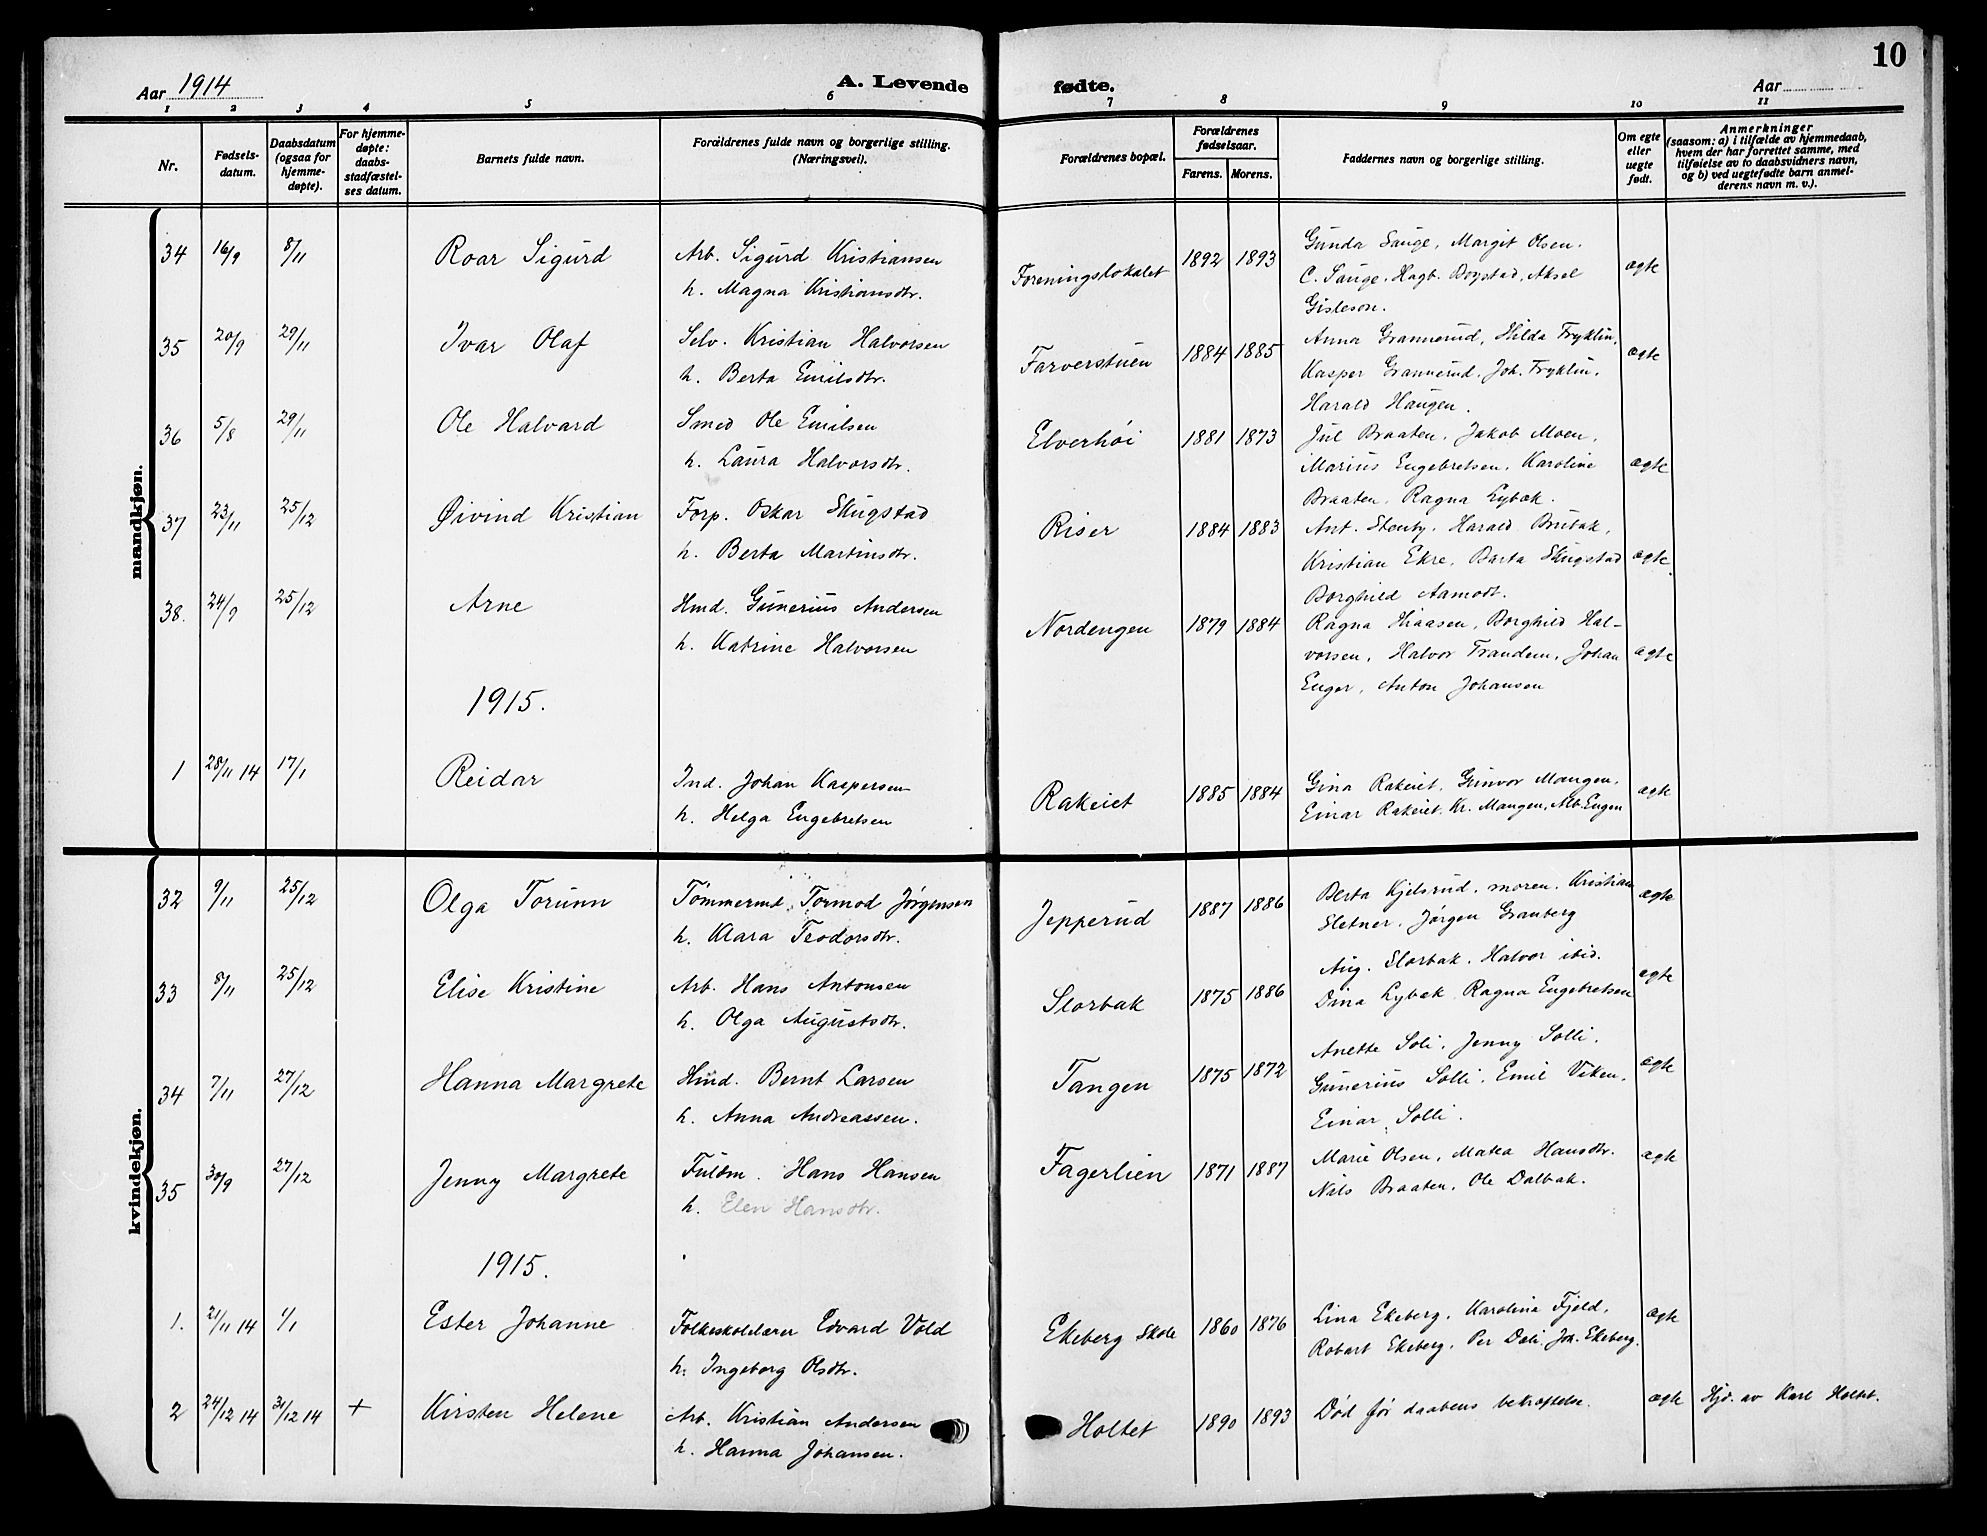 10
Aar 1914
A. Levende fødte.
Aar
1 2 3 4 5 6 7 8 9 10 11
Nr.
Fødsels-
datum.
Daabsdatum
(ogsaa for
hjemme-
døpte).
For hjemme-
døpte:
daabs-
stadfæstel-
ses datum.
Barnets fulde navn.
Forældrenes fulde navn og borgerlige stilling.
(Næringsvei).
Forældrenes bopæl.
Forældrenes
fødselsaar.
Farens. Morens.
Faddernes navn og borgerlige stilling.
Om egte
eller
uegte
født.
Anmerkninger
(saasom: a) i tilfælde av hjemmedaab,
hvem der har forrettet samme, med
tilføielse av to daabsvidners navn,
og b) ved uegtefødte barn anmel-
derens navn m. v.).
mandkjøn.
34 16/9 8/11 Roar Sigurd Arb. Sigurd Kristiansen Foreningslokalet 1892 1893 Gunda Sauge, Margit Olsen. ægte
h. Magna Kristiansdtr. C. Sauge, Hagb. Bogstad, Aksel
Gisleson.
35 20/9 29/11 Ivar Olaf Selv. Kristian Halvorsen Farverstuen 1884 1885 Anna Grannerud, Hilda Fryklin, ægte
h. Berta Emilsdtr. Kasper Grannerud, Joh. Fryklin,
Harald Haugen.
36 5/8 29/11 Ole Halvard Smed Ole Emilsen Elverhöi 1881 1873 Jul Braaten, Jakob Moen, ægte
h. Laura Halvorsdtr. Marius Engebretsen, Karoline
Braaten, Ragna Lybæk.
37 23/11 25/12 Øivind Kristian Forp. Oskar Skugstad Riser 1884 1883 Ant. Stenby, Harald Brubak, ægte.
h. Berta Martinsdtr. Kristian Ekre, Berta Skugstad
Borghild Aamodt.
38. 24/9 25/12 Arne Hmd. Gunerius Andersen Nordengen 1879 1884 Ragna Haasen, Borghild Hal- ægte
h. Katrine Halvorsen vorsen, Halvor Trandem, Johan
Enger, Anton Johansen
1915.
1 28/11 14 17/1 Reidar Ind. Johan Kaspersen Rakeiet 1885 1884 Gina Rakeiet, Gunvor Mangen, ægte
h. Helga Engebretsen Einar Rakeiet, Kr. Mangen, Alb. Engen
kvindekjøn.
32 9/11 25/12 Olga Torunn Tømmermd. Tormod Jørgensen Jepperud 1887 1886 Berta Kjelsrud, moren, Kristian ægte
h. Klara Teodorsdtr. Sletner, Jørgen Granberg
33 8/11 25/12 Elise Kristine Arb. Hans Antonsen Slorbak 1875 1886 Aug. Slorbak, Halvor ibid. ægte
h. Olga Augustsdtr. Dina Lybæk, Ragna Engebretsen
34 7/11 27/12 Hanna Margrete Hmd. Bernt Larsen Tangen 1875 1872 Anette Soli, Jenny Solli, ægte
h. Anna Andreassen. Gunerius Solli, Emil Viken,
Einar Solli.
35 30/9 27/12 Jenny Margrete Fuldm. Hans Hansen Fagerlien 1871 1887 Marie Olsen, Matea Hansdtr. ægte
h. Elen Hansdtr. Nils Braaten, Ole Dalbak.
1915.
1. 21/11 14 1/1 Ester Johanne Folkeskolelærer Edvard Vold Ekeberg skole 1860 1876 Lina Ekeberg, Karolina Fjeld, ægte
h. Ingeborg Olsdtr. Robert Ekeberg, Per Dali, Joh. Ekeberg.
2 24/12 14 31/12 14 + Kirsten Helene Arb. Kristian Andersen Holtet 1890 1893 Død før daabens bekræftelse. ægte Hjd. av Karl Holtet.
h. Hanna Johansen.